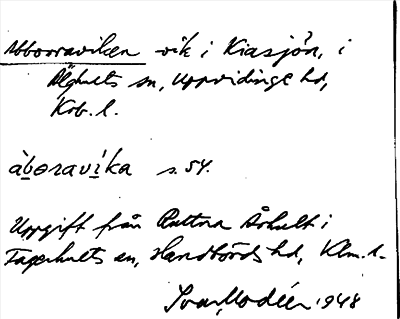 Abborraviken vik i Kiasjön, i
Älghults sn, Uppvidinge hd,
Krb. l.
àbəravìka s. 54.
Uppgift från Ruttna Århult i
Fagerhults sn, Handbörds hd, Klm. l.
Ivar Modéer 1948